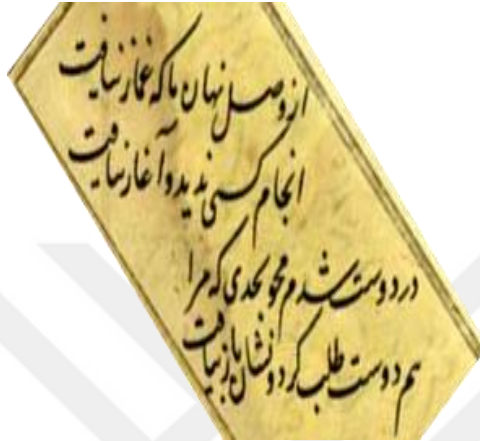 از وصل نهان ما که غماز نیافت
انجام کسی ندید و آغاز نیافت
در دوست شدم محو بحدی که مرا
هم دوست طلب کرد و نشان باز نیافت